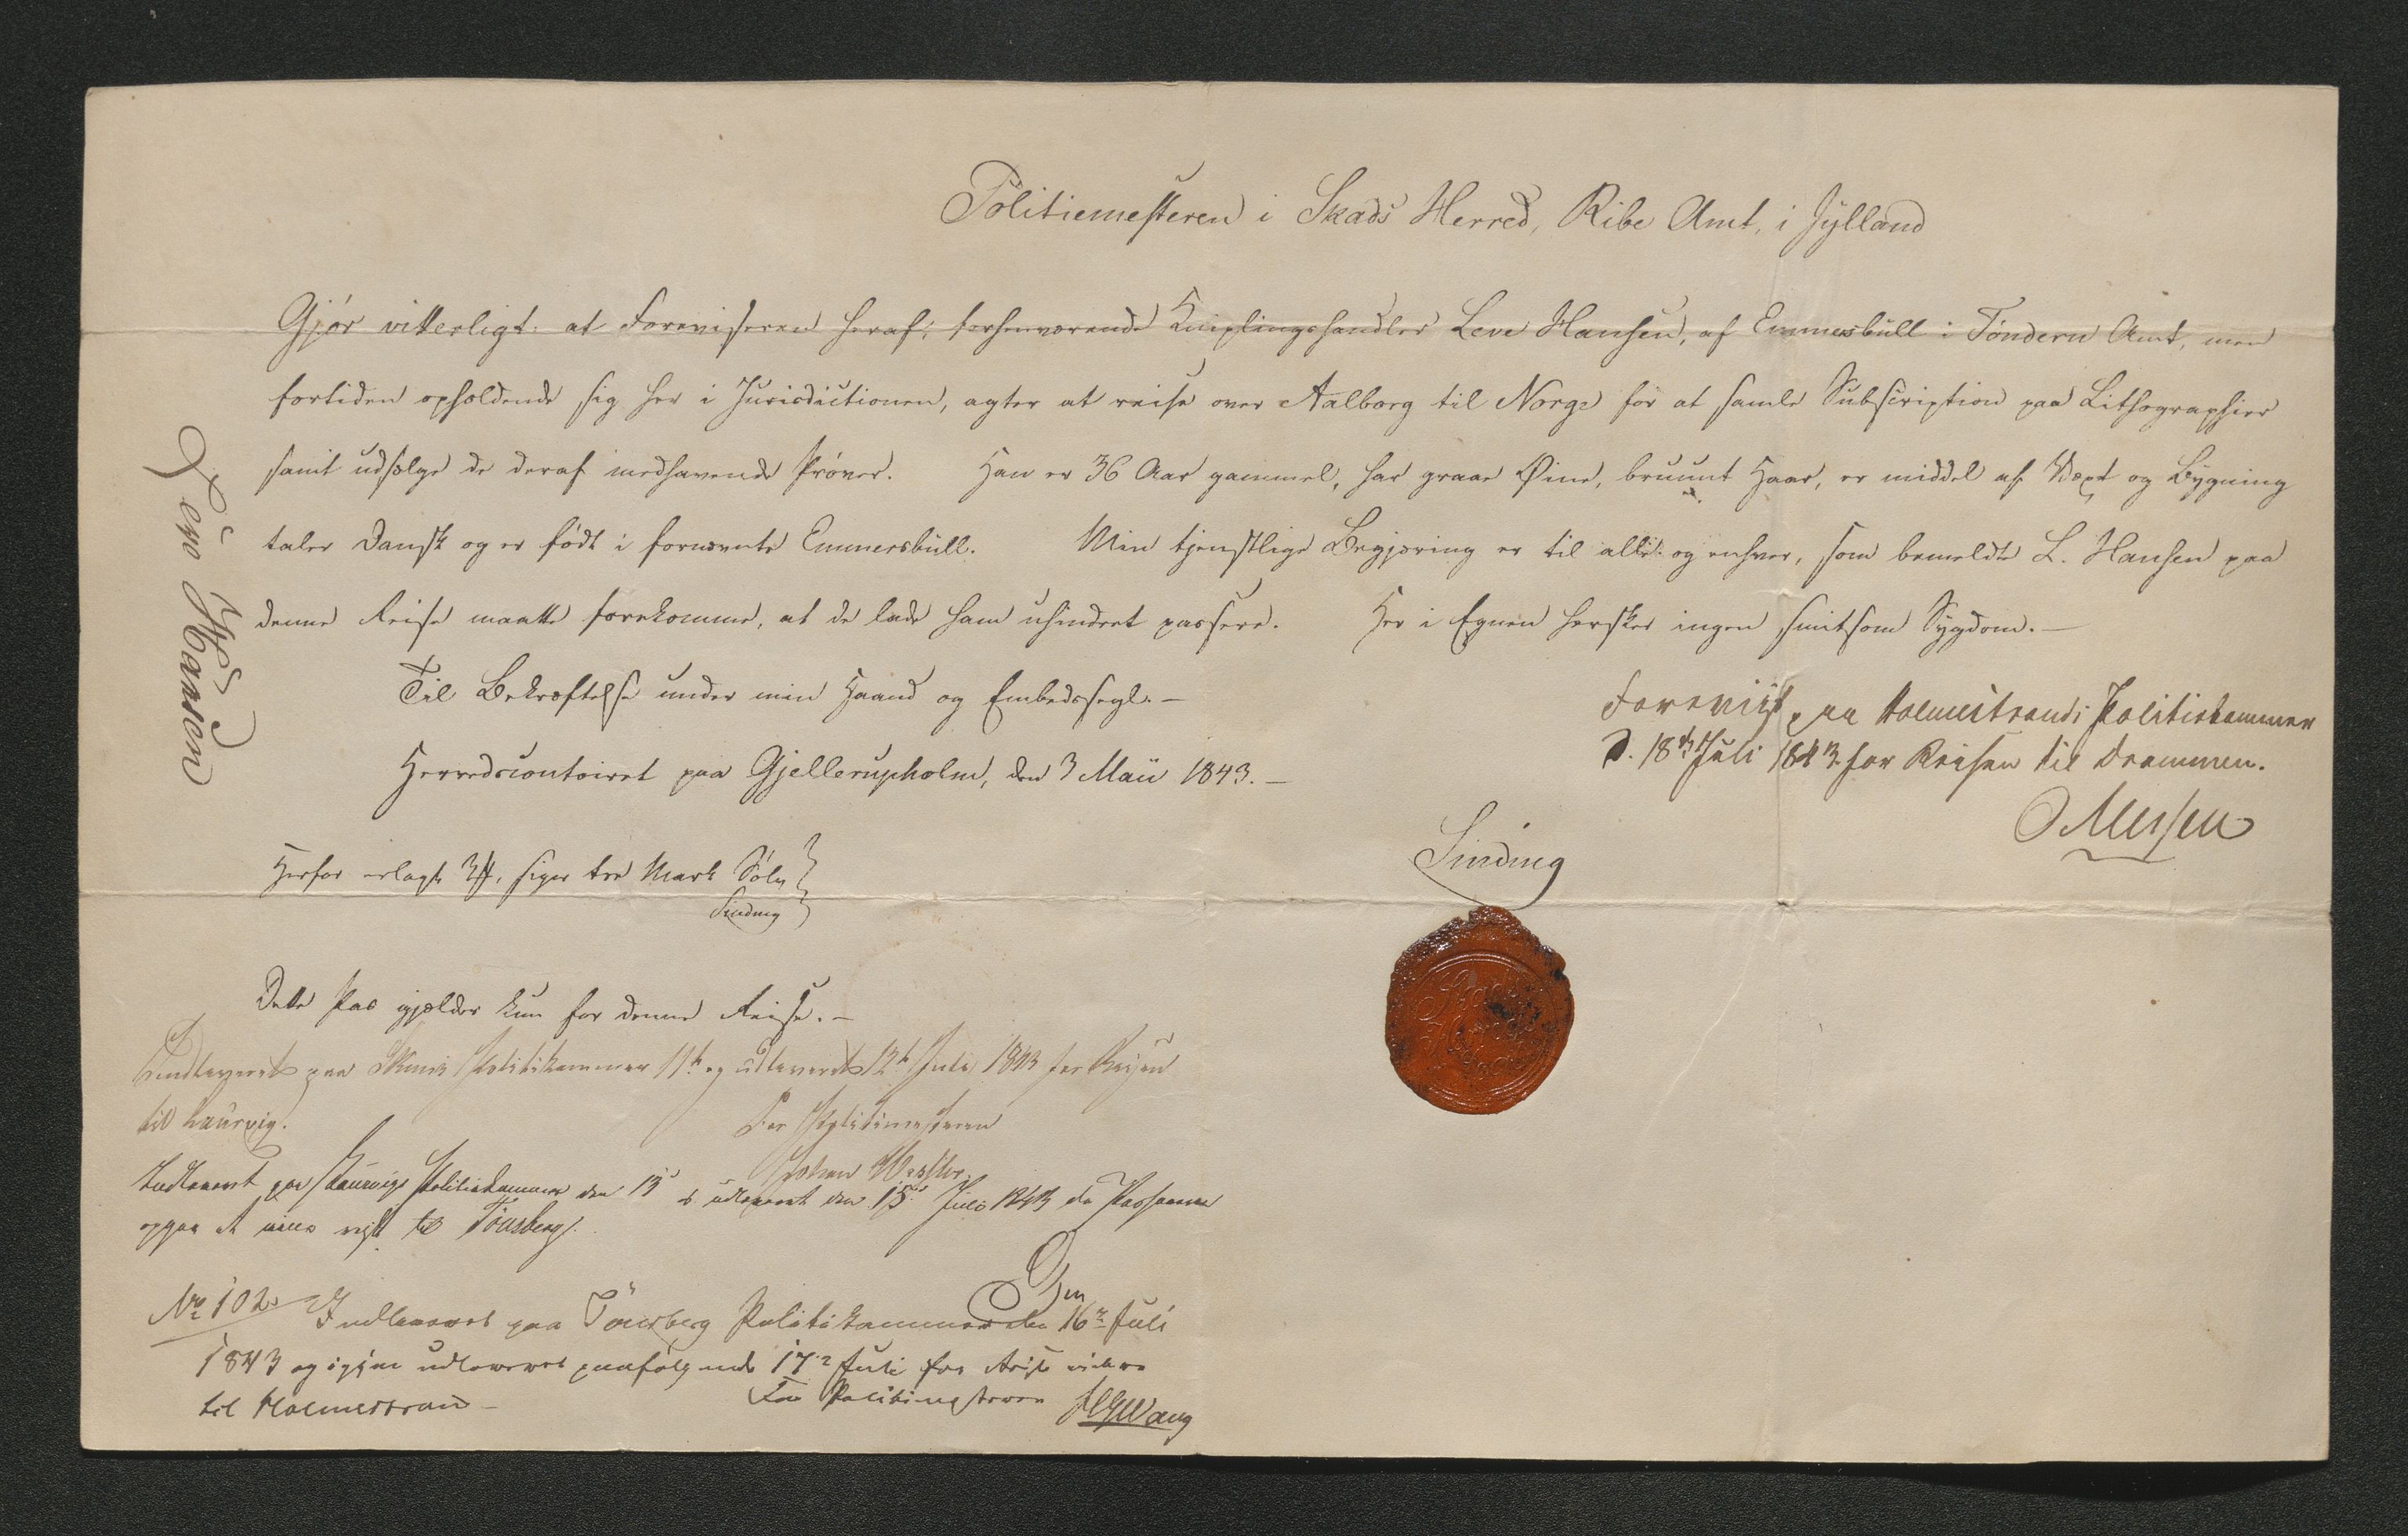 Politiemesteren i Skads Herred, Ribe Amt, i Jylland
Gjör vitterligt: at Foreviseren heraf, forhenværende Kniplingshandler Leve Hansen, af Emmesbüll i Töndern Amt, men
fortiden opholdende sig her i Jurisdictionen, agter at reise over Aalborg til Norge for at samle Subscription paa Lithographier
samt udsælge de deraf medhavende Pröver. Han er 36 Aar gammel, har graae Øine, bruunt Haar, er middel af Væxt og Bygning
taler Dansk og er födt i fornævnte Emmersbüll. Min tjenstlige Begjæring er til alle og enhver, som bemeldte L. Hansen paa
denne Reise maatte forekomme, at de lade ham uhindret passere. Her i Egnen hersker ingen smitsom Sygdom.—
Til Bekræftelse under min Haand og Embedssegl.—
Herredscontoiret paa Gjellerupholm, den 3 Maii 1843.—
Sinding
Herfor erlagt 3 ., siger tre Mark Sölv
Sinding
Dette Pas gjælder kun for denne Reise.—
Leve Hansen
Foreviist paa Holmestrands Politiekammer
d. 18de Juli 1843 for Reisen til Drammen.
Indleveret paa Politikammer 11te og udleveret 12te Juli 1843 for Reisen
til Laurvig.
For Politimesteren
Johan
Indleveret paa Laurvigs Politiekammer den 13 udleveret den 15 Juli 1843 da Passanten
opgav at ville reise til Tönsberg.
No 102. Indleveret paa Tönsberg Politikammer den 16de Juli
1843 og igjen udleveret paafölgende 17de Juli for Reise videre
til Holmestrand —
For Politimesteren
Wang
Skads
Herred